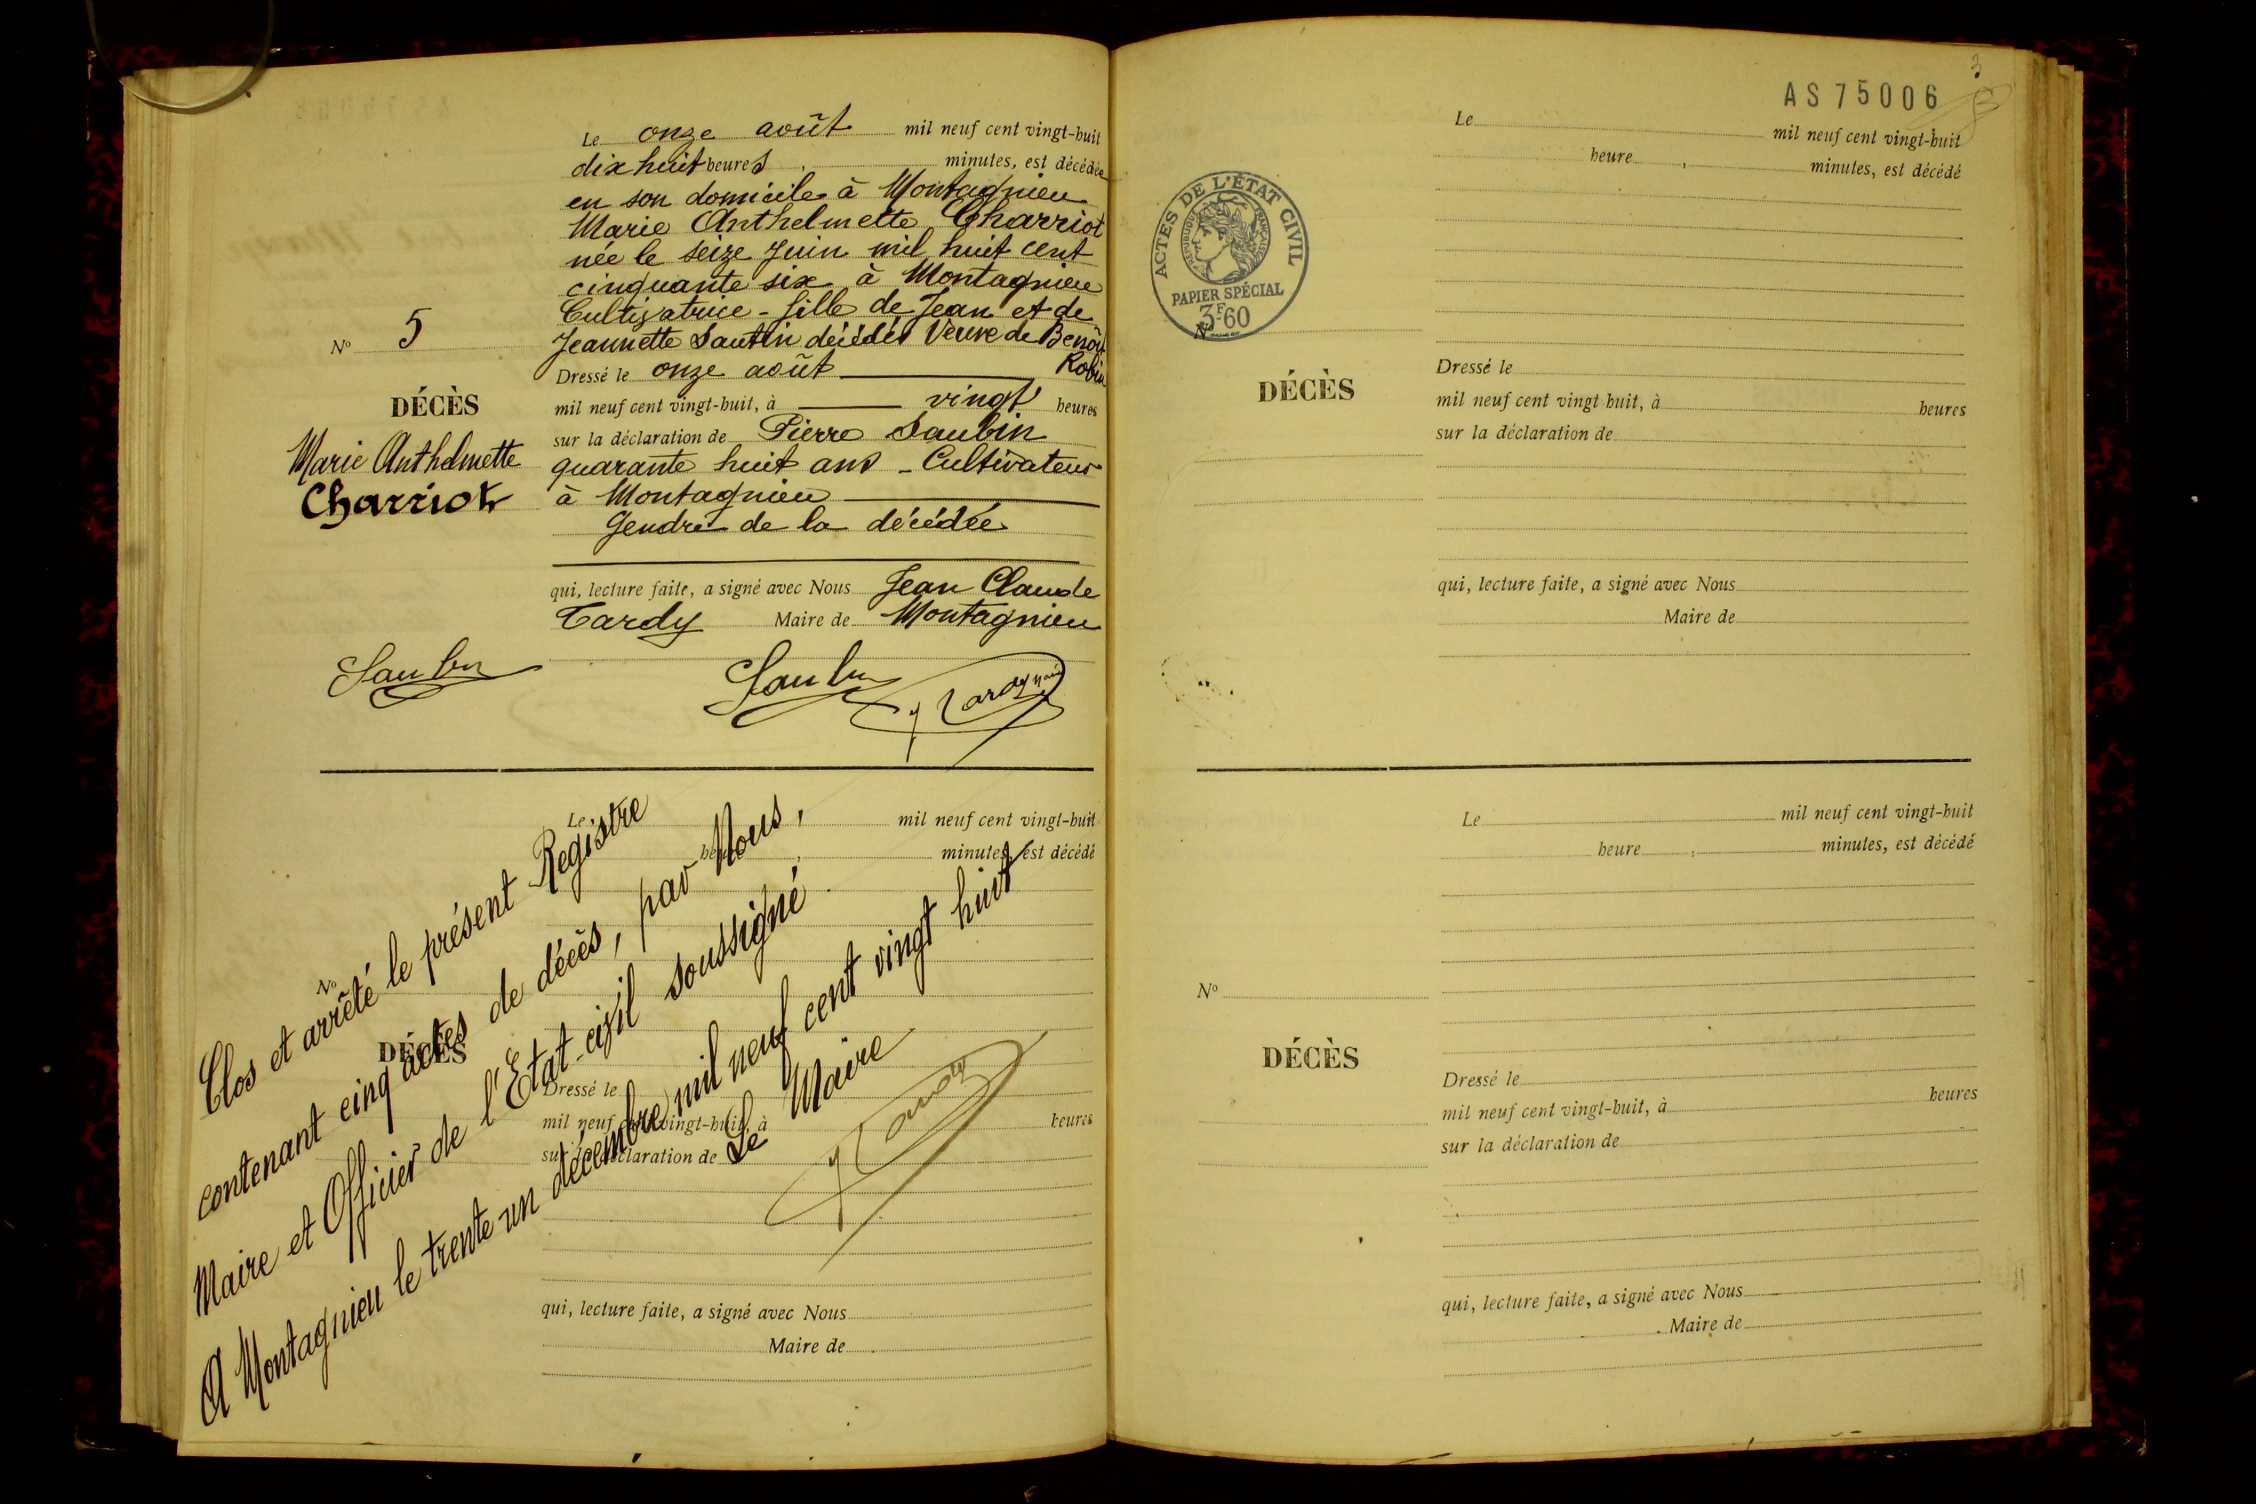 Le onze août mil neuf cent vingt-huit
dix huit heures , minutes, est décédée
en son domicile à Montagnieu
Marie Anthelmette Charriot
née le seize Juin mil huit cent
cinquante six à Montagnieu
Cultivatrice - fille de Jean et de
Jeannette Sautin décédés Veuve de Benoît
Robin
Nº 5
DÉCÈS
Marie Anthelmette
Charriot
Dressé le onze août
mil neuf cent vingt-huit, à vingt heures
sur la déclaration de Pierre Saubin
quarante huit ans - Cultivateur
à Montagnieu
Gendre de la décédée
qui, lecture faite, a signé avec Nous Jean Claude
Tardy Maire de Montagnieu
Saubin
Saubin
J Tardy maire
Le mil neuf cent vingt-huit
heure , minutes, est décédé
Nº
DÉCÈS
Dressé le
mil neuf cent vingt-huit, à heures
sur la déclaration de
qui, lecture faite, a signé avec Nous
Maire de
Clos et arrêté le présent Registre
contenant cinq actes de décès, par Nous,
Maire et Officier de l'Etat-civil soussigné
A Montagnieu le trente un décembre mil neuf cent vingt huit
Le Maire
J Tardy
3
AS 75006
ACTES DE L'ÉTAT CIVIL
RÉPUBLIQUE FRANÇAISE
PAPIER SPÉCIAL
3F60
Le mil neuf cent vingt-huit
heure , minutes, est décédé
Nº
DÉCÈS
Dressé le
mil neuf cent vingt huit, à heures
sur la déclaration de
qui, lecture faite, a signé avec Nous
Maire de
Le mil neuf cent vingt-huit
heure , minutes, est décédé
Nº
DÉCÈS
Dressé le
mil neuf cent vingt-huit, à heures
sur la déclaration de
qui, lecture faite, a signé avec Nous
Maire de